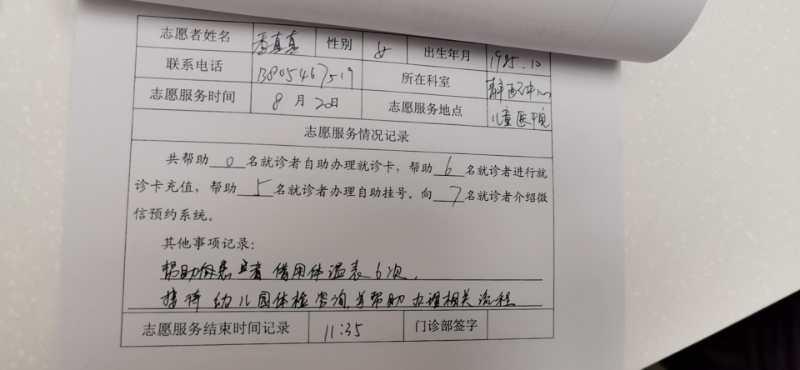 志愿者姓名 真真 性别 女 出生年月 1985.10
联系电话 13805467519 所在科室 静配中心
志愿服务时间 8月20日 志愿服务地点 儿童医院
志愿服务情况记录
共帮助 0 名就诊者自助办理就诊卡，帮助 6 名就诊者进行就
诊卡充值，帮助 5 名就诊者办理自助挂号。向 7 名就诊者介绍微
信预约系统。
其他事项记录：
帮助 患者 借用体温表6次.
接待幼儿园体检咨询并帮助办理相关流程
志愿服务结束时间记录 11:35 门诊部签字